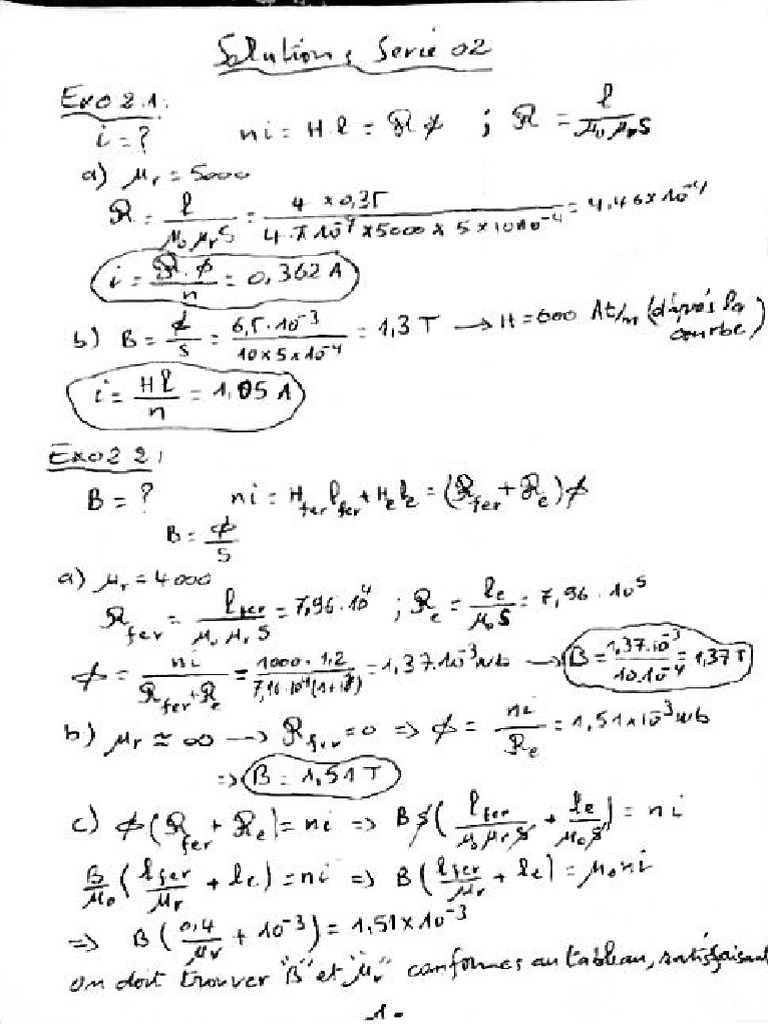 Solution, Serie 02
Exo 2.1:
i = ? ni = Hl = ℜϕ ; ℜ = l / μ₀μᵣs
a) μᵣ = 5000
ℜ = l / μ₀μᵣs = 4 × 0,35 / 4.π10⁻⁷ × 5000 × 5 × 10 10⁻⁴ = 4,46 × 10⁻⁴
i = ℜ.ϕ / n = 0,362 A
b) B = ϕ / s = 6,5 . 10⁻³ / 10 × 5 × 10⁻⁴ = 1,3 T → H = 600 At/m (d'après la courbe)
i = Hl / n = 1,05 A
Exo 2 2:
B = ? ni = H_fer l_fer + H_e l_e = (ℜ_fer + ℜ_e) ϕ
B = ϕ / S
a) μᵣ = 4000
ℜ_fer = l_fer / μ₀ μᵣ S = 7,96 . 10⁴ ; ℜ_e = l_e / μ₀ S = 7,96 . 10⁵
ϕ = ni / ℜ_fer + ℜ_e = 1000 . 1,2 / 7,96 . 10⁴ (1+10) = 1,37.10⁻³ wb → B = 1,37.10⁻³ / 10.10⁻⁴ = 1,37 T
b) μᵣ ≈ ∞ → ℜ_fer = 0 ⇒ ϕ = ni / ℜ_e = 1,51 × 10⁻³ wb
⇒ B = 1,51 T
c) ϕ (ℜ_fer + ℜ_e) = ni ⇒ BS (l_fer / μ₀ μᵣ S + l_e / μ₀ S) = ni
B / μ₀ (l_fer / μᵣ + l_e) = ni ⇒ B (l_fer / μᵣ + l_e) = μ₀ n i
⇒ B (0,4 / μᵣ + 10⁻³) = 1,51 × 10⁻³
on doit trouver "B" et "μᵣ" conformes au tableau, satisfaisant
-1-